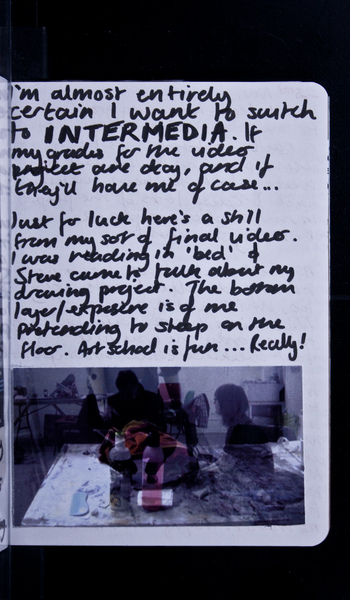 I'm almost entirely
certain I want to switch
to INTERMEDIA. If
my grades for the video
project are okay, and if
they'll have me of course...
Just for luck here's a still
from my sort of final video.
I was reading in 'bed' &
Steve came to talk about my
drawing project. The bottom
layer/exposure is of me
pretending to sleep on the
floor. Art school is fun.... Really!